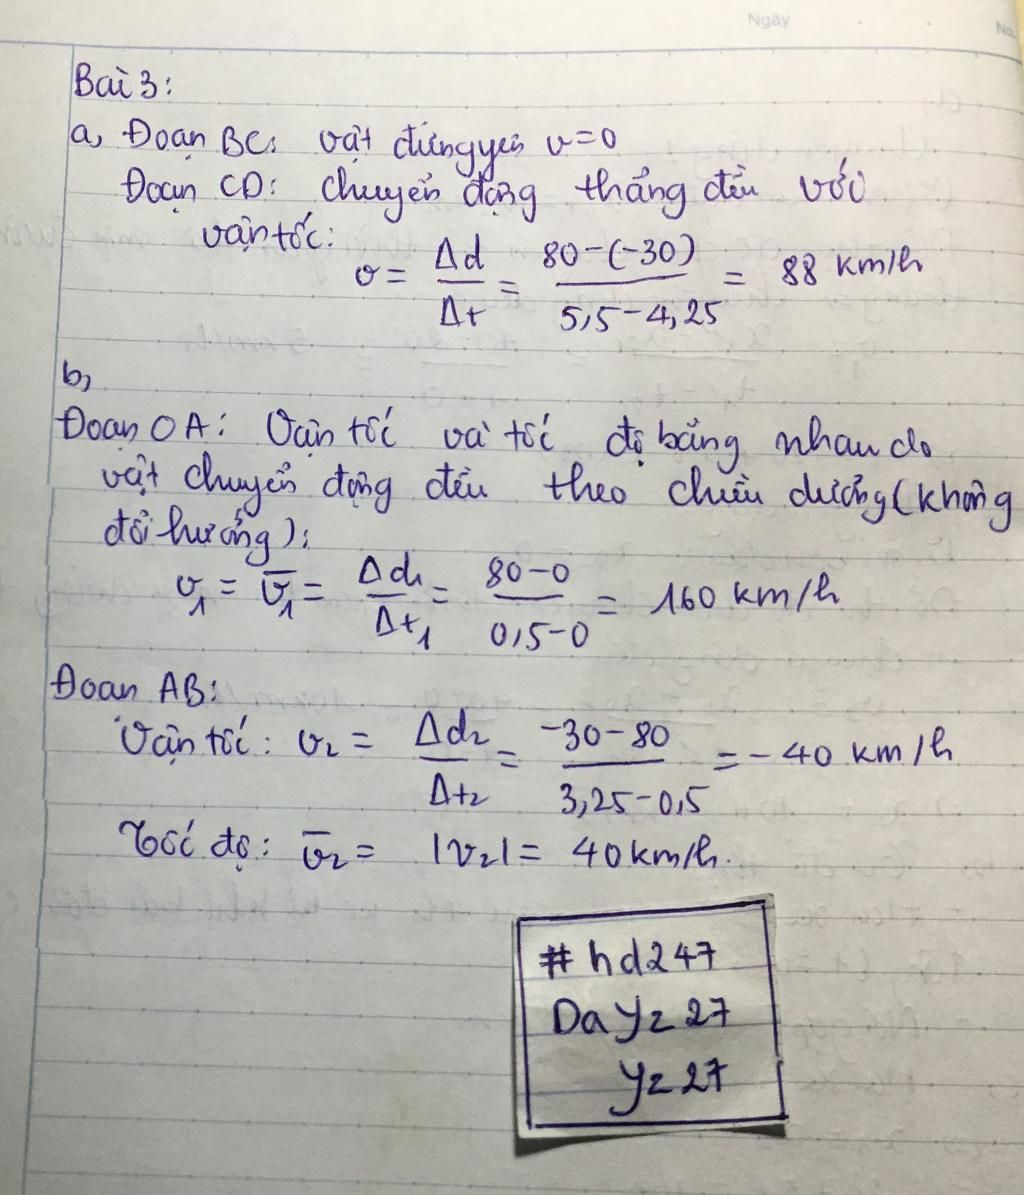 Ngày
No.
Bài 3:
a, Đoạn BC: vật đứng yên v=0
Đoạn CD: chuyển động thẳng đều với
vận tốc:
v = Δd/Δt = 80-(-30)/5,5-4,25 = 88 km/h
b,
Đoạn OA: Vận tốc và tốc độ bằng nhau do
vật chuyển động đều theo chiều dương (không
đổi hướng):
v₁ = v̅₁ = Δd₁/Δt₁ = 80-0/0,5-0 = 160 km/h
Đoạn AB:
Vận tốc: v₂ = Δd₂/Δt₂ = -30-80/3,25-0,5 = -40 km/h
Tốc độ: v̅₂ = |v₂| = 40 km/h.
#hd247
Dayz27
yz27